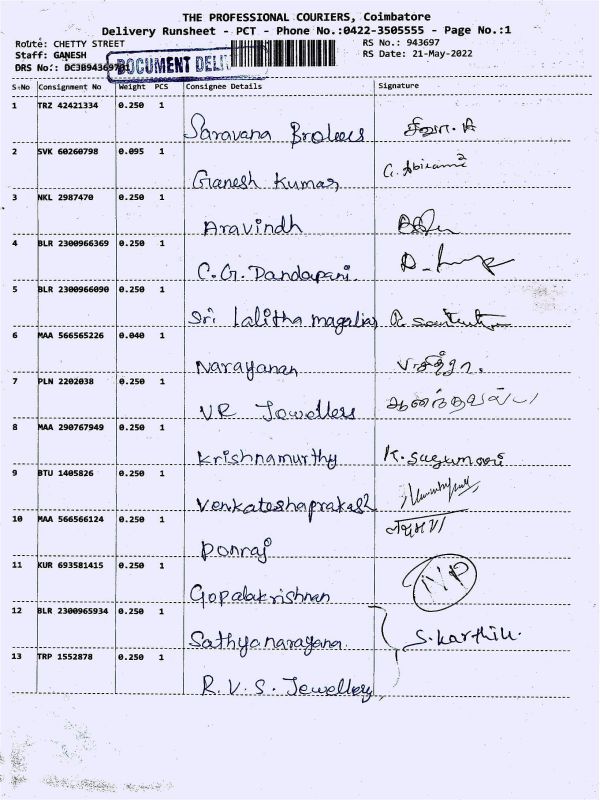 THE PROFESSIONAL COURIERS, Coimbatore
Delivery Runsheet - PCT - Phone No.:0422-3505555 - Page No.:1
Route: CHETTY STREET RS No.: 943697
Staff: GANESH RS Date: 21-May-2022
DRS No.: DOCUMENT
S-No Consignment No Weight PCS Consignee Details Signature
1 TRZ 42421334 0.250 1
Saravana
2 SVK 60260798 0.095 1
Ganesh Kumar G. Abirami
3 NKL 2987470 0.250 1
Aravindh
4 BLR 2300966369 0.250 1
C.G. Dandapani.
5 BLR 2300966090 0.250 1
Sri Lalitha
6 MAA 566565226 0.040 1
Narayanan
7 PLN 2202038 0.250 1
VR Jewellers
8 MAA 290767949 0.250 1
Krishnamurthy
9 BTU 1405826 0.250 1
Venkateshaprakash
10 MAA 566566124 0.250 1
Ponraj
11 KUR 693581415 0.250 1
Gopalakrishnan
12 BLR 2300965934 0.250 1
Sathyanarayana. S. Karthik.
13 TRP 1552878 0.250 1
R.V.S. Jewellery